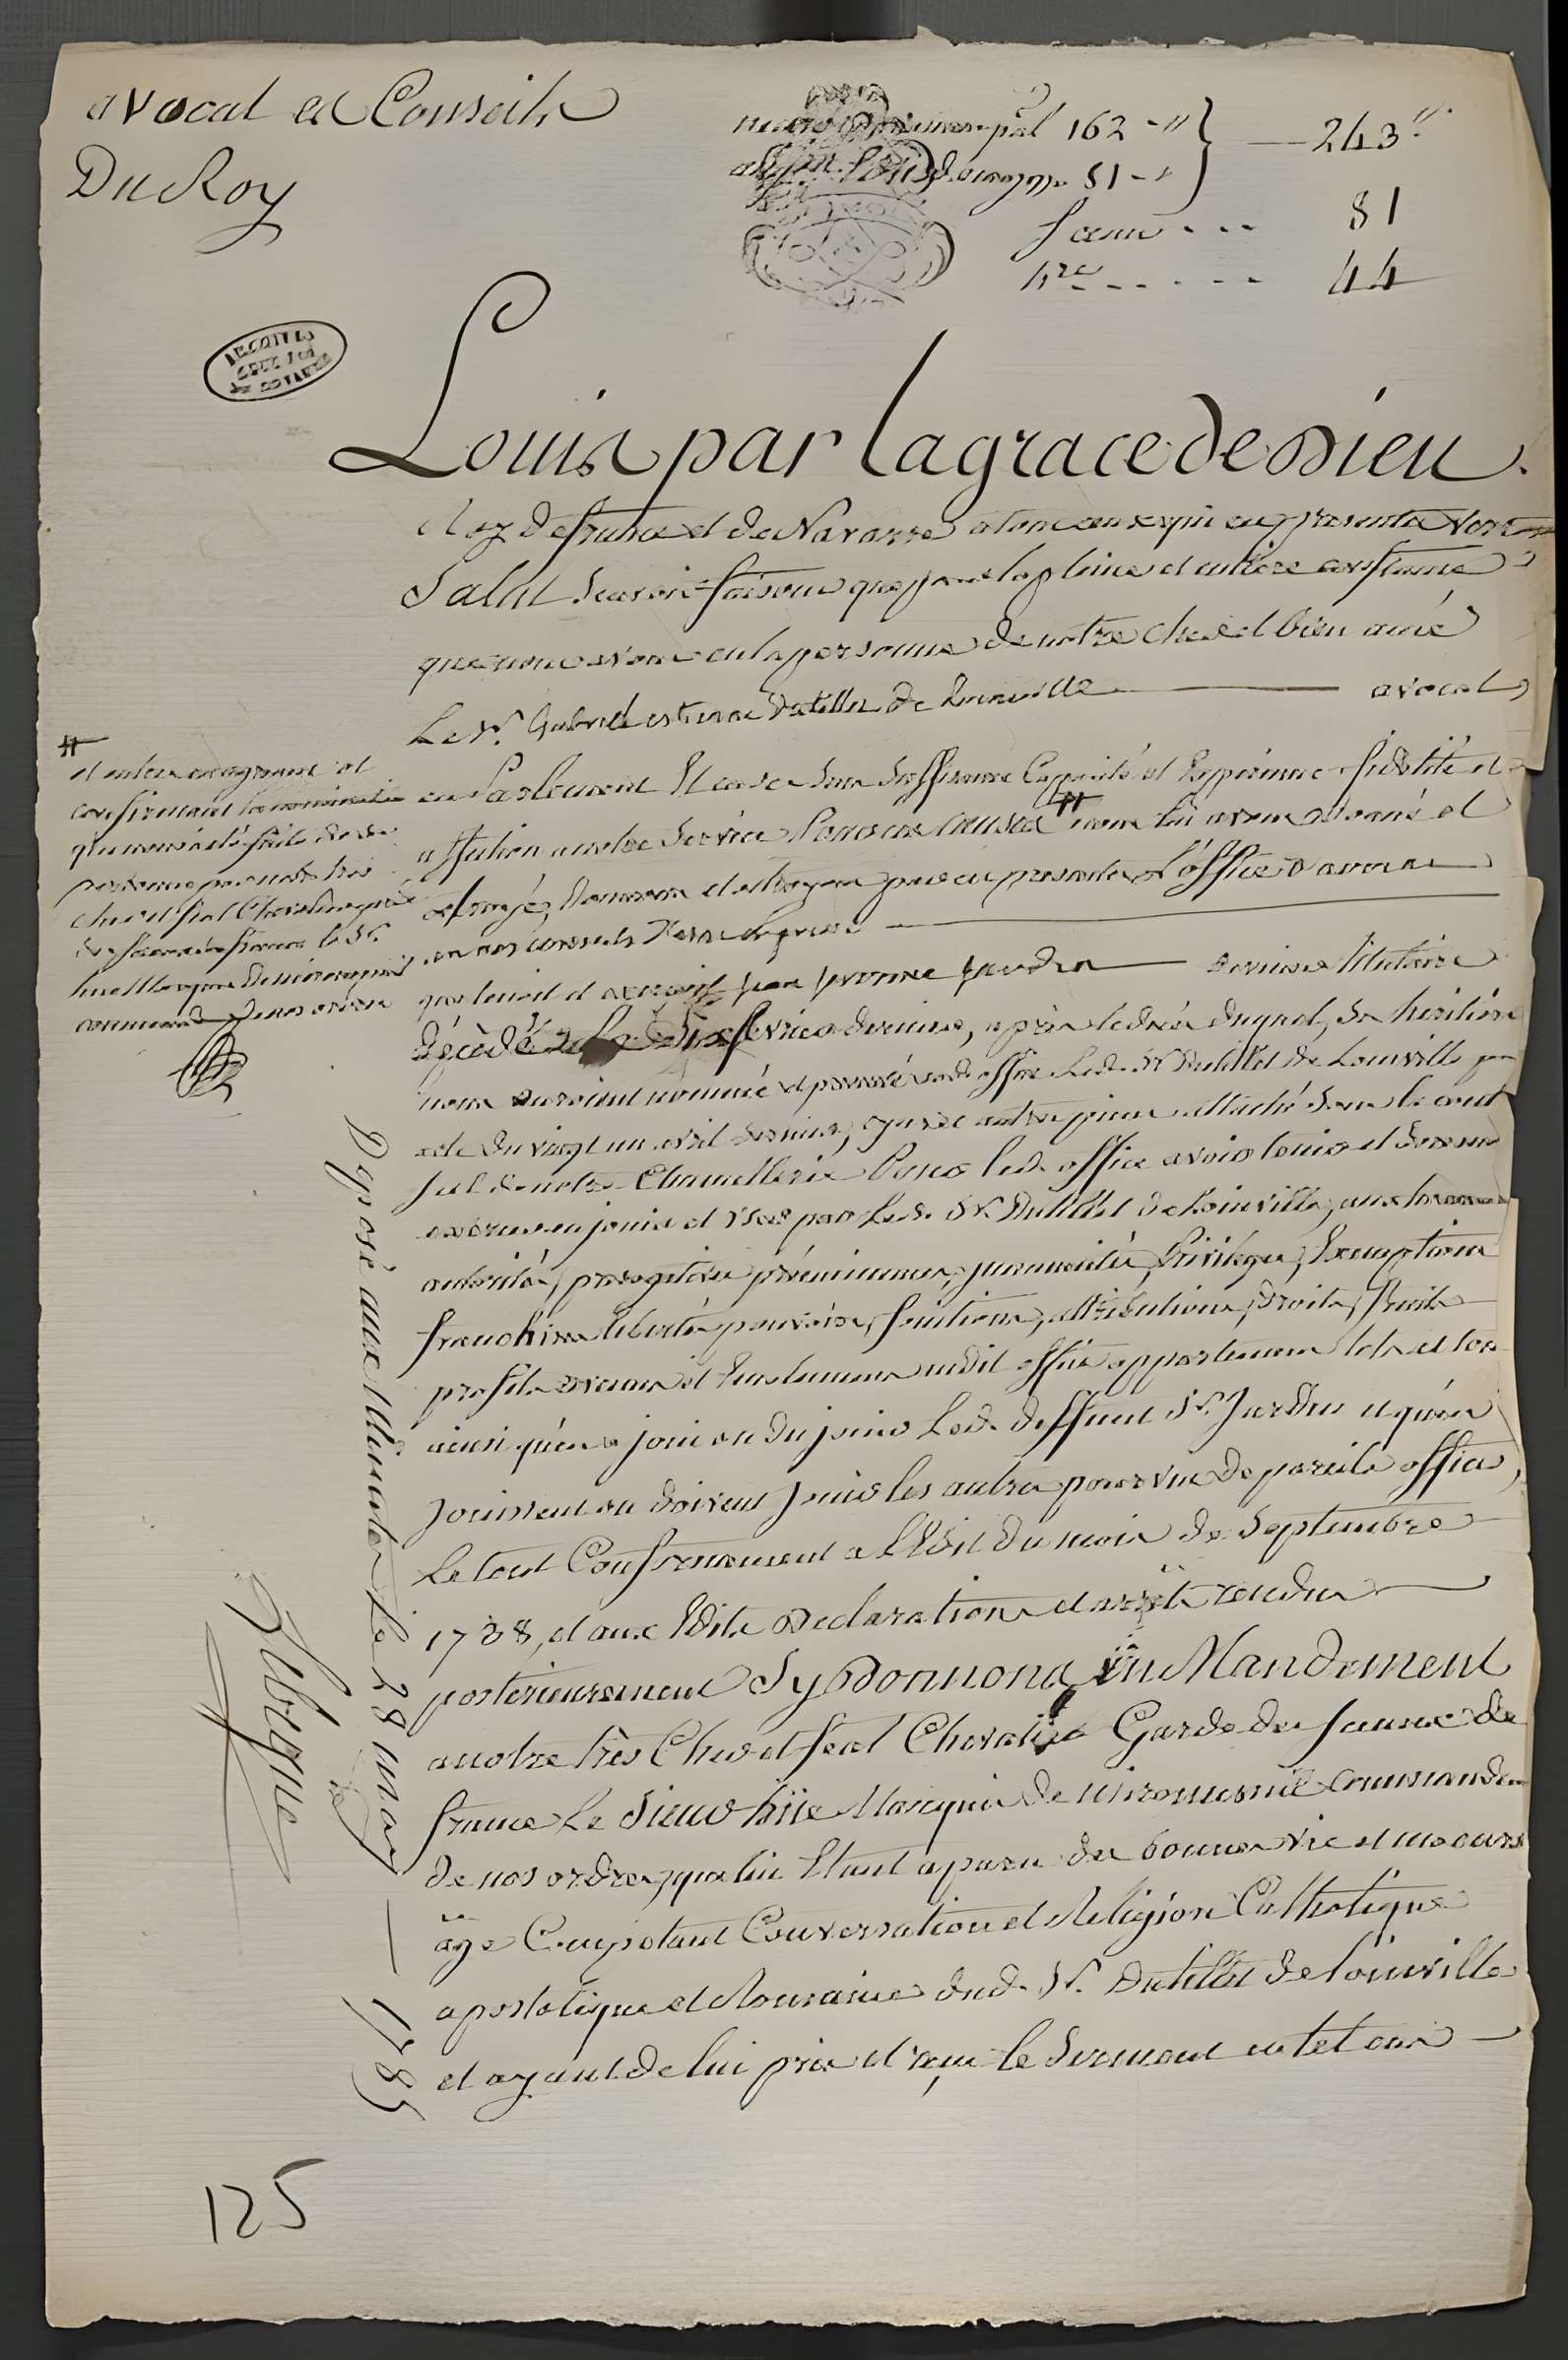 avocat es Conseils
Du Roy
marc d'or principal 162 - "
51 - "
243 "
Sceau - - - 81
h.re - - - - - - 44
Louis par la grace de Dieu
Roy de france et de Navarre a tous ceux qui ces presentes verront
Salut Scavoir faisons que pour la pleine et entiere confiance
que nous avons en la personne de notre cher et bien amé
Le Sr. Gabriel etienne dutillet de Loinville avocat
en Parlement Et en ses Sens Suffisance Capacité et Experience fidelité et
affection a notre Service Pour ces causes # nous lui avons donné et
octroyé, Donnons et octroyons par ces presentes L'office d'avocat
en nos conseils
que tenoit et exerçoit dernier titulaire
décédé le fevrier dernier, apres le deces duquel, Sa heritiere
nous auroient nommé et presenté aud. office Led. Sr Dutillet de Loinville par
acte du vingt un avril dernier, cy avec autres pieces attaché Sous le contre
Scel de notre Chancellerie Pour led. office avoir tenir et doresnavant
exercer en jouir et user par Led. Sr. Dutillet de Loinville, aux honneurs
autorités, prerogatives préeminences, Privileges, Exemptions
franchises libertés pouvoirs, fonctions, attributions, droits, fruits
profits revenus et Emolumens audit office appartenans tels et tout
ainsi qu'en a joui ou du jouir Led. deffunt Sr. et qu'en
jouissent ou doivent jouir les autres pourvus de pareils offices,
Le tout Conformement a L'Edit du mois de Septembre
1738, et aux Edits Declarations et arrêts rendus
posterieurement Sy Donnons en Mandement
a notre très Cher et feal Chevalier Garde des Sceaux de
france Le Sieur hüe Marquis de Miromesnil commandeur
de nos ordres, que lui Etant aparu des bonnes vie et moeurs
âge Competant Conversation et Religion Catholique
apostolique et Romaine dud. Sr. Dutillet de Loinville
et ayant de lui pris et reçu le Serment en tel cas
#
et autres en agreant et
confirmant la nomination
qui nous a été faite de sa
personne par notre tres
cher et feal Chevalier garde
des Sceaux de france le Sr.
hue Marquis de miromesnil
commandeur de nos ordres
Déposé aux Minutes Le 28 may 1785
125